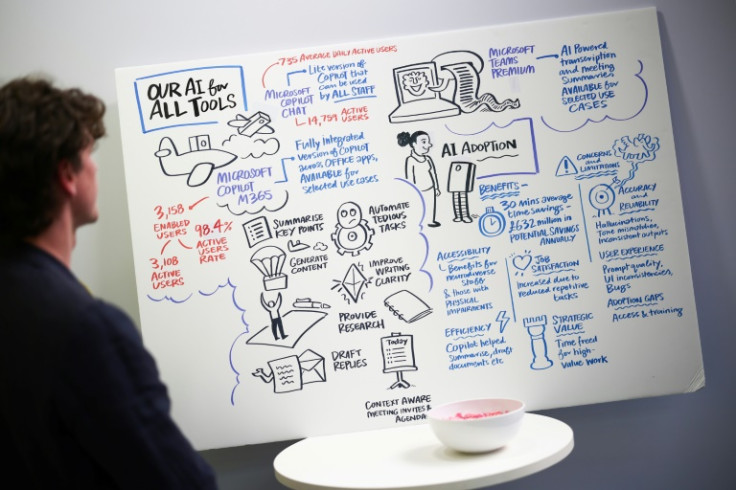 OUR AI for
ALL TOOLS
755 AVERAGE DAILY ACTIVE USERS
MICROSOFT
COPILOT
CHAT
Lite version of
Copilot that
can be used
by ALL STAFF
14,759 ACTIVE
USERS
MICROSOFT
COPILOT
M365
Fully integrated
version of Copilot
across OFFICE apps,
Available for
selected use cases
3,158
ENABLED
USERS
98.4%
ACTIVE
USERS
RATE
3,108
ACTIVE
USERS
SUMMARISE
KEY POINTS
AUTOMATE
TEDIOUS
TASKS
GENERATE
CONTENT
IMPROVE
WRITING
CLARITY
PROVIDE
RESEARCH
DRAFT
REPLIES
Today
CONTEXT AWARE
MEETING INVITES &
AGENDA
MICROSOFT
TEAMS
PREMIUM
AI Powered
transcription
and meeting
Summaries
AVAILABLE for
SELECTED USE
CASES
AI ADOPTION
BENEFITS-
30 mins average
time savings -
POTENTIAL SAVINGS
ANNUALLY
ACCESSIBILITY
Benefits for
neurodiverse
staff
& those with
PHYSICAL
IMPAIRMENTS
JOB
SATISFACTION
Increased due to
reduced repetitive
tasks
EFFICIENCY
Copilot helped
summarise, draft
documents etc
STRATEGIC
VALUE
Time freed
for high-
value work
CONCERNS
and
LIMITATIONS
ACCURACY
and
RELIABILITY
Hallucinations,
Tone mismatches,
inconsistent outputs
USER EXPERIENCE
Prompt quality,
UI inconsistencies,
Bugs
ADOPTION GAPS
Access & training